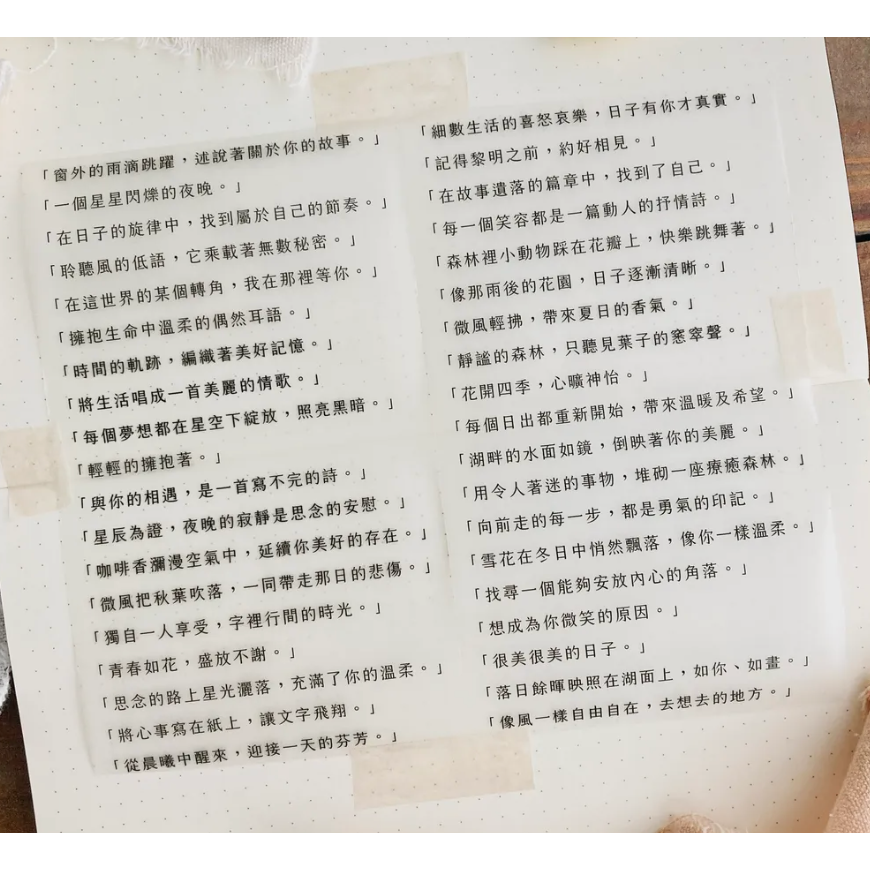 「窗外的雨滴跳躍，述說著關於你的故事。」
「一個星星閃爍的夜晚。」
「在日子的旋律中，找到屬於自己的節奏。」
「聆聽風的低語，它乘載著無數秘密。」
「在這世界的某個轉角，我在那裡等你。」
「擁抱生命中溫柔的偶然耳語。」
「時間的軌跡，編織著美好記憶。」
「將生活唱成一首美麗的情歌。」
「每個夢想都在星空下綻放，照亮黑暗。」
「輕輕的擁抱著。」
「與你的相遇，是一首寫不完的詩。」
「星辰為證，夜晚的寂靜是思念的安慰。」
「咖啡香瀰漫空氣中，延續你美好的存在。」
「微風把秋葉吹落，一同帶走那日的悲傷。」
「獨自一人享受，字裡行間的時光。」
「青春如花，盛放不謝。」
「思念的路上星光灑落，充滿了你的溫柔。」
「將心事寫在紙上，讓文字飛翔。」
「從晨曦中醒來，迎接一天的芬芳。」
「細數生活的喜怒哀樂，日子有你才真實。」
「記得黎明之前，約好相見。」
「在故事遺落的篇章中，找到了自己。」
「每一個笑容都是一篇動人的抒情詩。」
「森林裡小動物踩在花瓣上，快樂跳舞著。」
「像那雨後的花園，日子逐漸清晰。」
「微風輕拂，帶來夏日的香氣。」
「靜謐的森林，只聽見葉子的窸窣聲。」
「花開四季，心曠神怡。」
「每個日出都重新開始，帶來溫暖及希望。」
「湖畔的水面如鏡，倒映著你的美麗。」
「用令人著迷的事物，堆砌一座療癒森林。」
「向前走的每一步，都是勇氣的印記。」
「雪花在冬日中悄然飄落，像你一樣溫柔。」
「找尋一個能夠安放內心的角落。」
「想成為你微笑的原因。」
「很美很美的日子。」
「落日餘暉映照在湖面上，如你、如畫。」
「像風一樣自由自在，去想去的地方。」